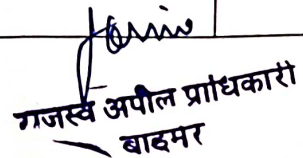 राजस्व अपील प्राधिकारी
बाडमर